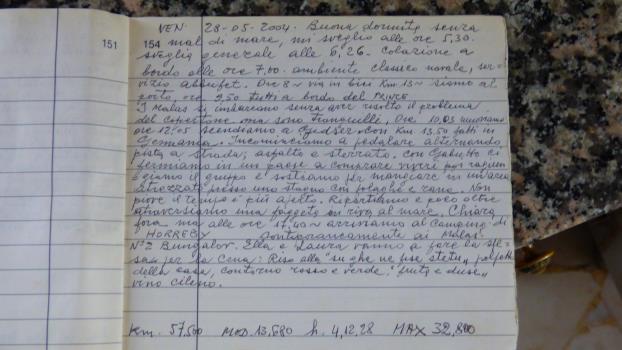 151
154
VEN. 28-05-2004. Buona dormita senza
mal di mare, mi sveglio alle ore 5,30.
sveglia generale alle 6,26. Colazione a
bordo alle ore 7,00. ambiente classico navale, ser-
vizio abbuffet. Ore 8 ~ via in bici Km 15 ~ siamo al
porto, ore 9,50 tutti a bordo del PRINCE
I Malas si imbarcano senza aver risolto il problema
del copertone ma sono tranquilli, Ore, 10,03
ore 12,05 scendiamo a Gedser con Km. 13,50 fatti in
Germania. Incominciamo a pedalare alternando
pista a strada; asfalto e sterrato. con ci
fermiamo in un paese a comprare viveri poi raggiun
giamo il gruppo e sostiamo per mangiare in un'area
attrezzata presso uno stagno con folaghe e rane. Non
piove il tempo è più aperto. Ripartiamo e poco oltre
attraversiamo una faggeta in riva al mare. Chiara
fora ma alle ore 17,40 ~ arriviamo al Camping di
HORREBY ai Malas.
N° 2 Bungalov. Ella e Laura vanno a fare la spe-
sa per la Cena: Riso alla "su ghe ne fuse stetu"
della casa, contorno rosso e verde. "fruts e duse"
vino cileno.
Km. 57,500 MED. 13,680 h. 4,12,28 MAX 32,800